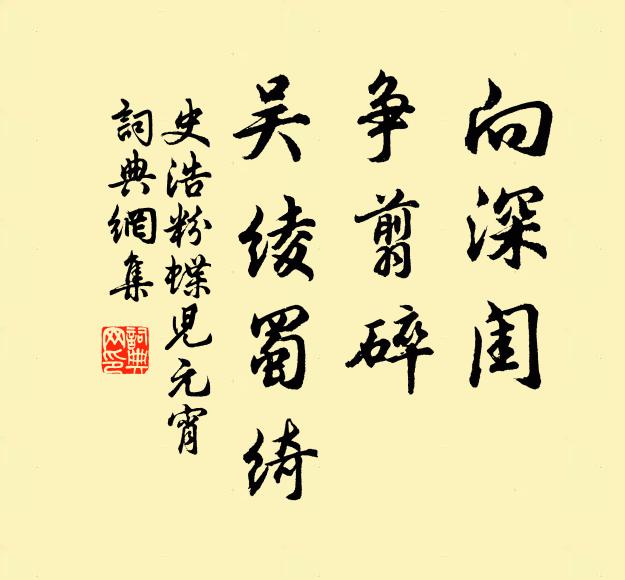 向深闺
争翦碎
吴绫蜀绮
史浩粉蝶児元宵
詞典網集
詞典网印